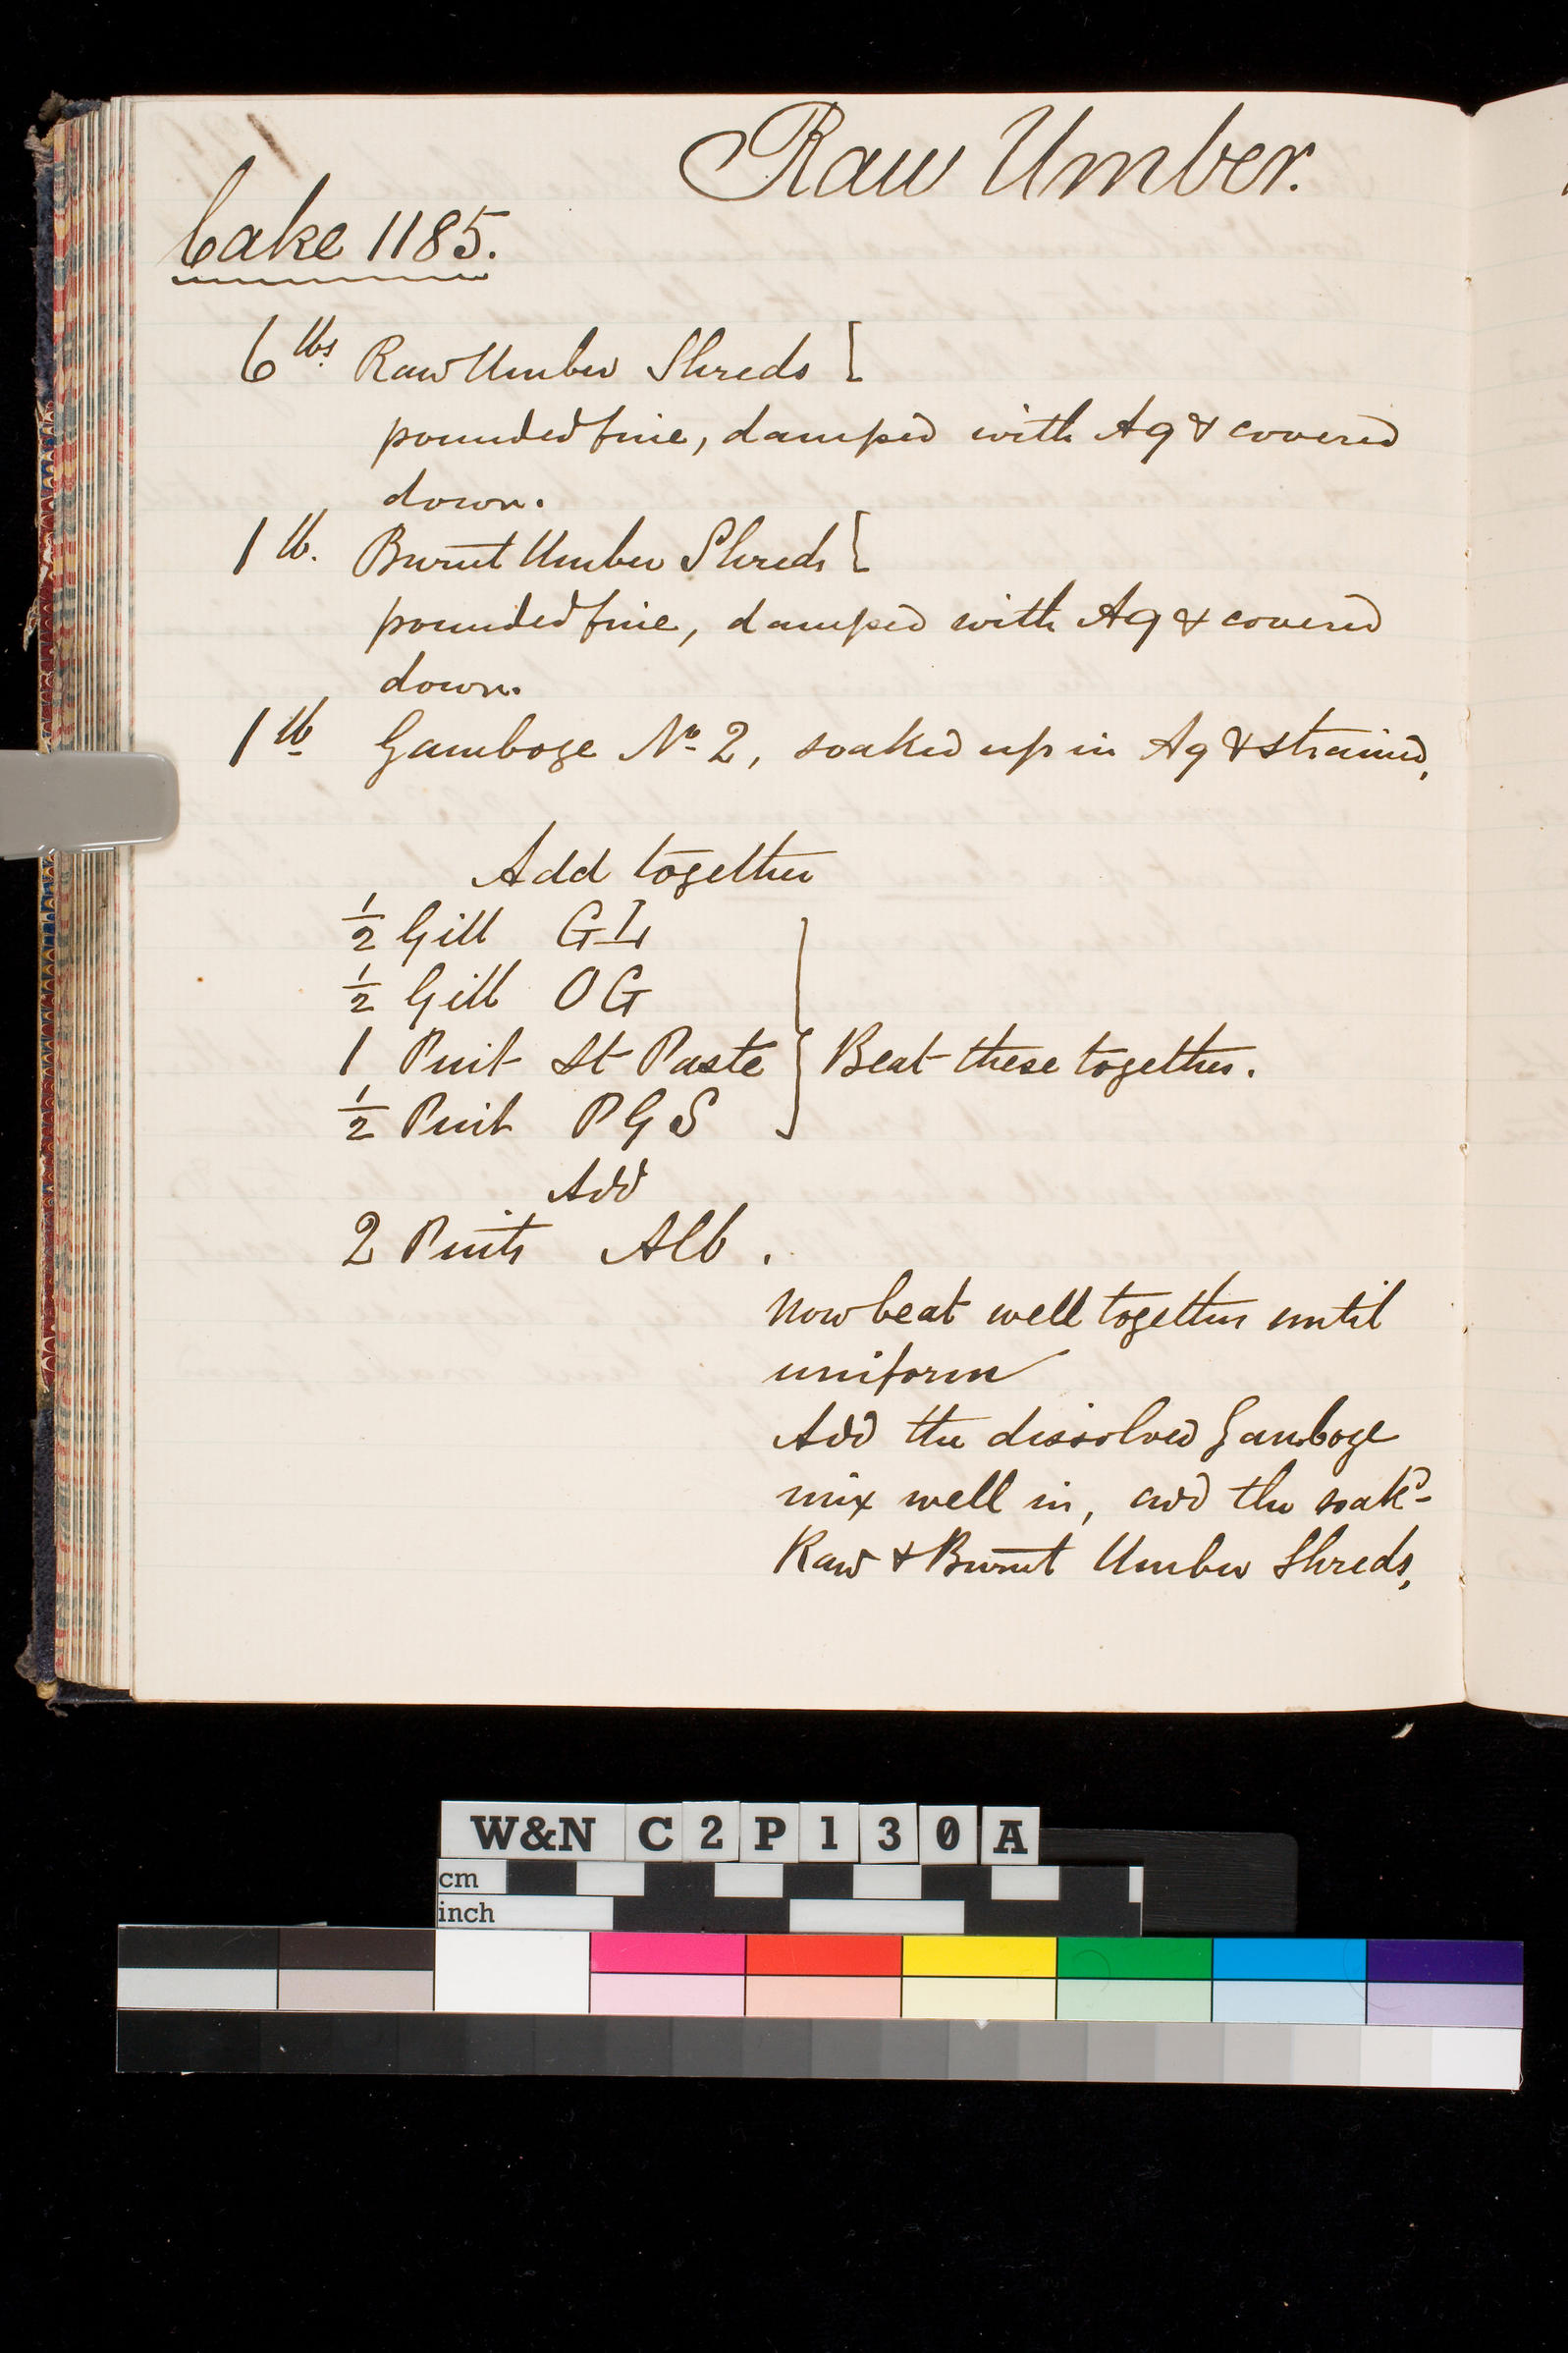 Raw Umber.
Cake 1185.
6 lbs. Raw Umber Shreds [
pounded fine, damped with Aq & covered
down.
1 lb. Burnt Umber Shreds [
pounded fine, damped with Aq & covered
down.
1 lb Gamboge No 2, soaked up in Aq & strained,
Add together
1/2 Gill GL
1/2 Gill OG
1 Pint St Paste } Beat these together.
1/2 Pint PGS
Add
2 Pints Alb.
Now beat well together until
uniform
Add the dissolved Gamboge
mix well in, add the soakd
Raw & Burnt Umber Shreds,
W&N C2P130A
cm
inch